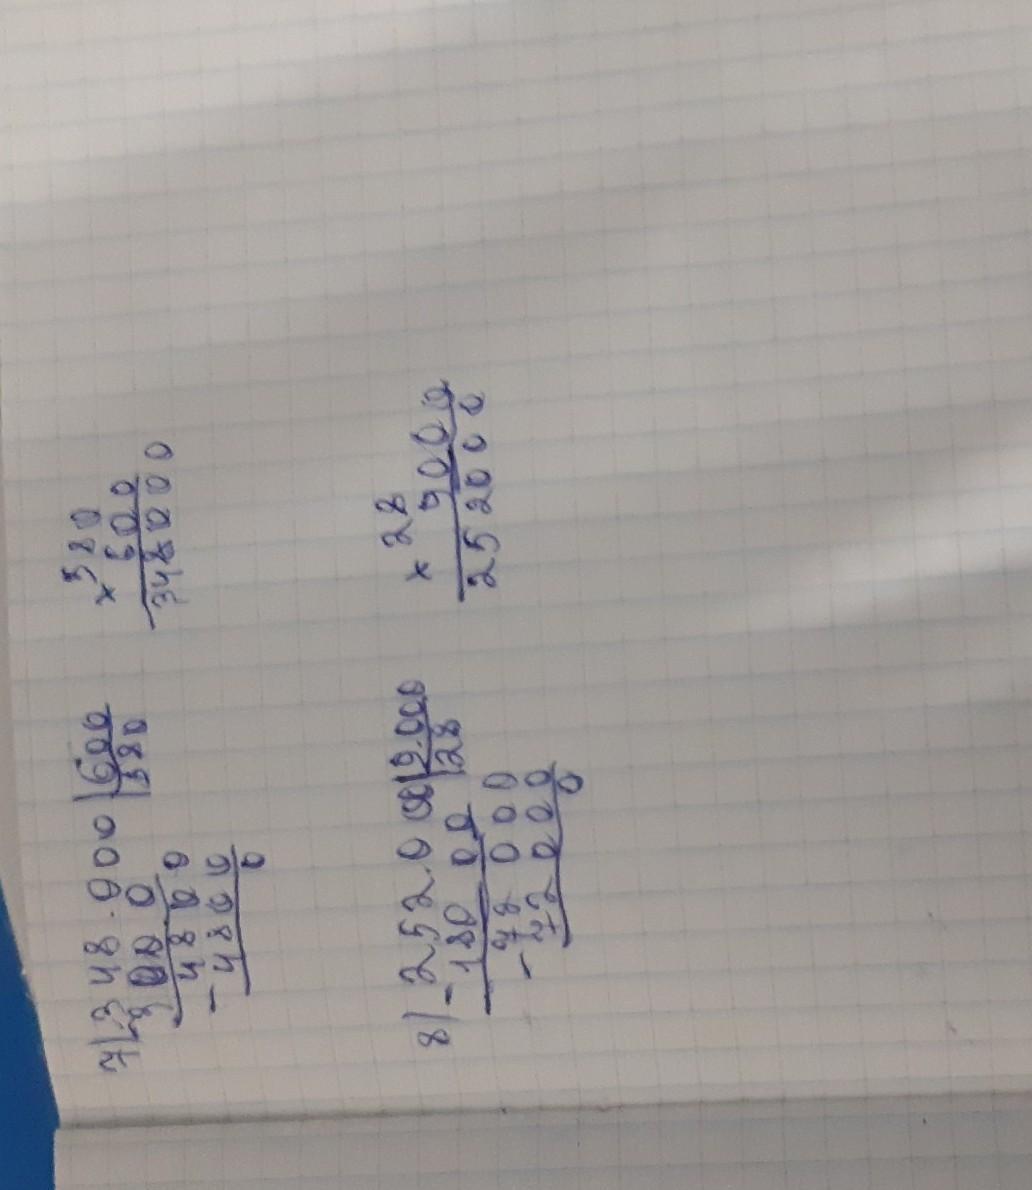 7) 348.000 | 600
- 3000 | 580
4800
- 4800
0
× 580
600
348000
8) 252.000 | 9.000
- 18000 | 28
72000
- 72000
0
× 28
9000
252000